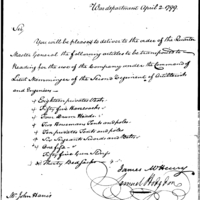 Wardepartment April 2. 1799.
Sir
You will be pleased to deliver to the order of the Quarter
Master General the following articles to be transported to
Reading for the use of the Company under the Command of
Lieut Muhlenberg of the Second Regiment of Artillerists
and Engineers—
Eighteen private tents
Fifty five Knapsacks
Four Drum Heads
Two Horsemans Tents and poles
Ten private Tents and poles
Six
Fifty five
Thirty Bedsacks
James McHenry
Samuel Hodgdon
Mr John Harris